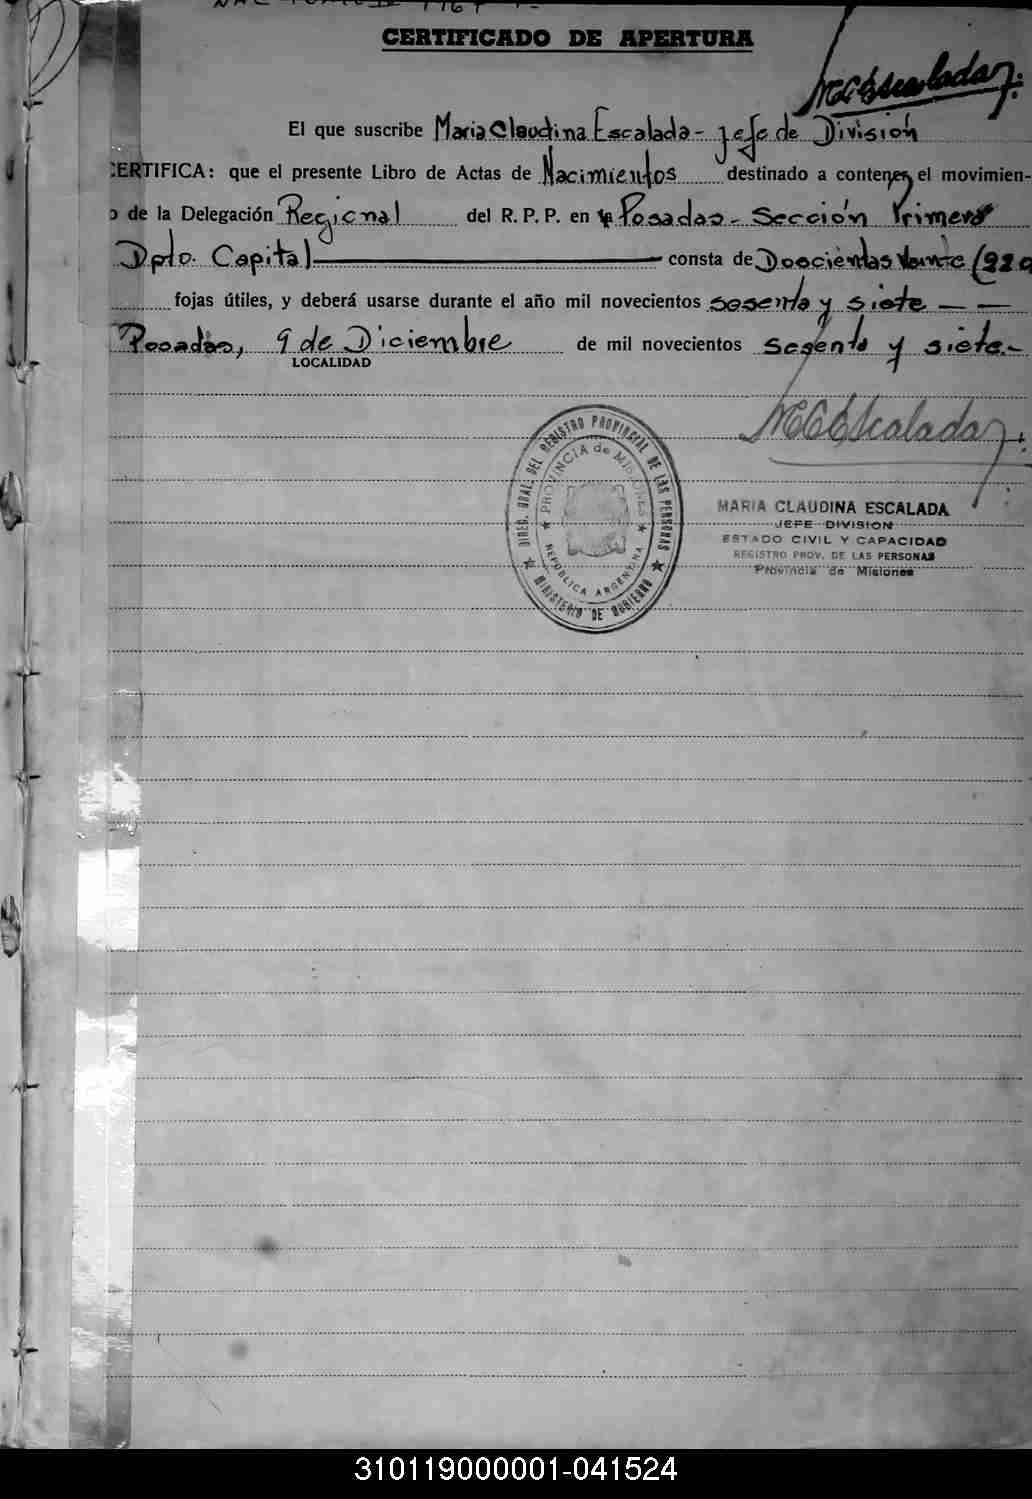 CERTIFICADO DE APERTURA
MCEscalada
El que suscribe Maria Claudina Escalada - jefe de División
CERTIFICA: que el presente Libro de Actas de Nacimientos destinado a contener el movimien-
o de la Delegación Regional del R. P. P. en Posadas - Sección Primera
Dpto. Capital consta de Doscientas Veinte (220
fojas útiles, y deberá usarse durante el año mil novecientos sesenta y siete - -
Posadas, 9 de Diciembre de mil novecientos sesenta y siete.-
LOCALIDAD
MCEscalada
DIREC. GRAL. DEL REGISTRO PROVINCIAL DE LAS PERSONAS
PROVINCIA de MISIONES
REPUBLICA ARGENTINA
MINISTERIO DE GOBIERNO
MARIA CLAUDINA ESCALADA
JEFE DIVISION
ESTADO CIVIL Y CAPACIDAD
REGISTRO PROV. DE LAS PERSONAS
Provincia de Misiones
310119000001-041524